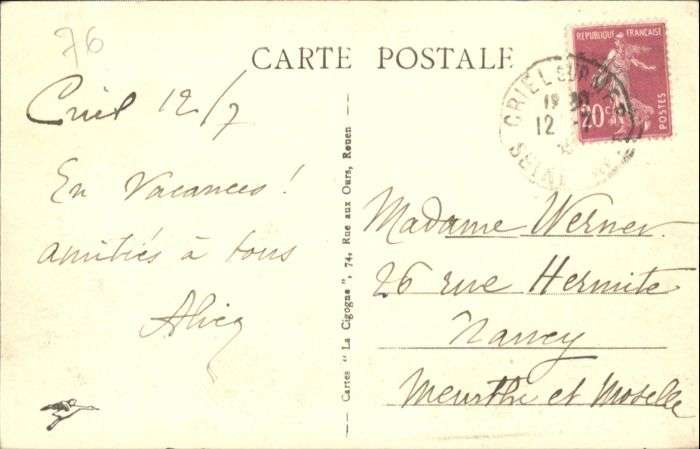 76
CARTE POSTALE
REPUBLIQUE FRANÇAISE
20c
POSTES
CRIEL SUR MER
12 -7
SEINE
Criel 12/7
En Vacances !
amitiés à tous
Cartes " La Cigogne ", 74, Rue aux Ours, Rouen
Madame Werner
26 rue Hermite
Nancy
Meurthe et Moselle